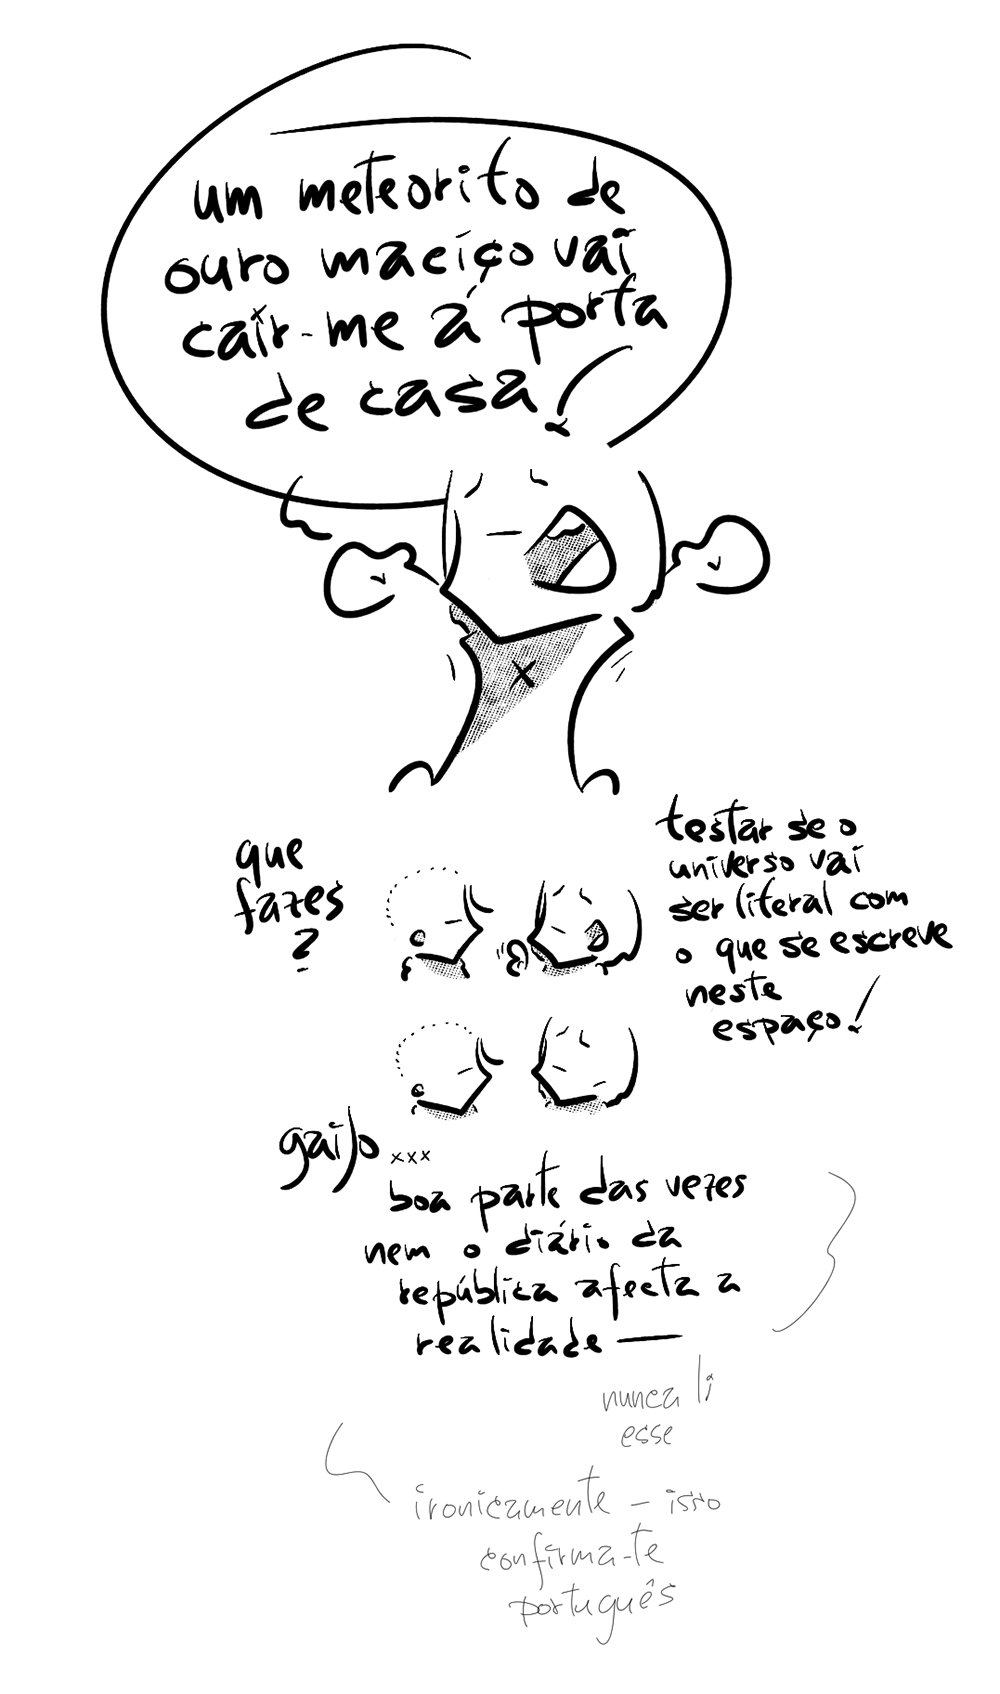 um meteorito de
ouro maciço vai
cair-me á porta
de casa!
que
fazes
?
testar se o
universo vai
ser literal com
o que se escreve
neste
espaço!
gaijo...
boa parte das vezes
nem o diário da
república afecta a
realidade —
nunca li
esse
ironicamente – isso
confirma-te
português